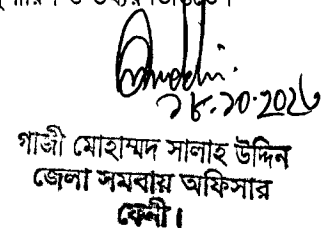 ১৮.১০.২০২৬
গাজী মোহাম্মদ সালাহ উদ্দিন
জেলা সমবায় অফিসার
ফেনী।